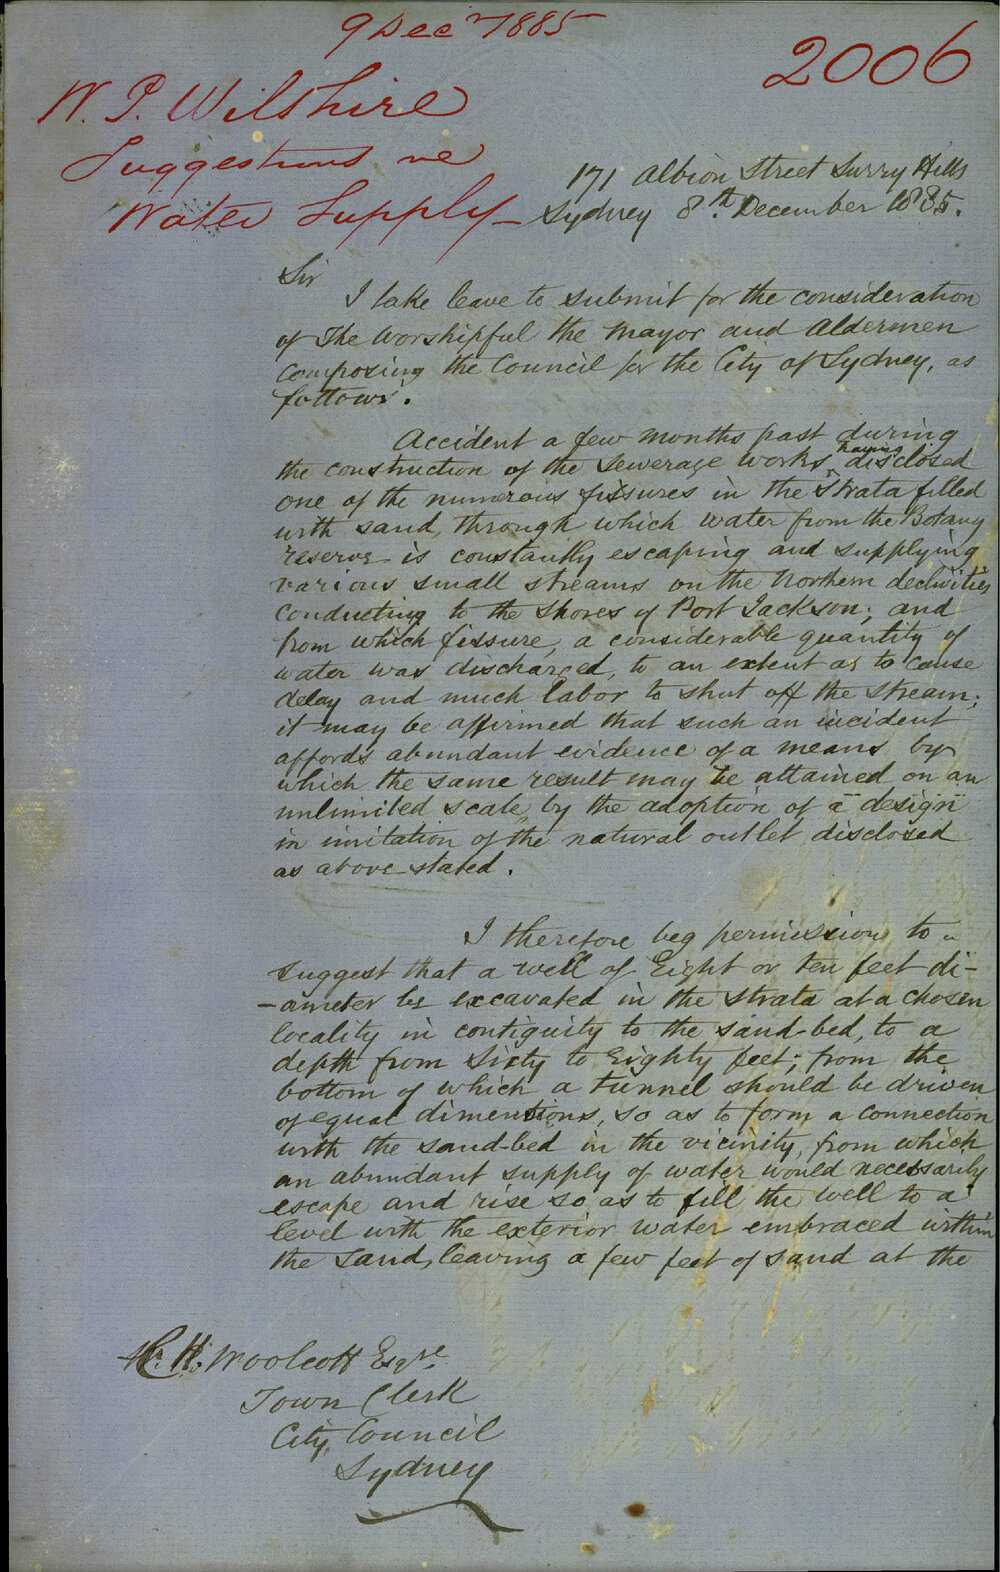 9 Decr 1885
2006
W. P. Wilshire
Suggestions re
Water Supply
171 Albion Street Surry Hills
Sydney 8th December 1885.
Sir
I take leave to submit for the consideration
of The Worshipful the Mayor and Aldermen
composing the Council for the City of Sydney, as
follows.
Accident a few months past during
the construction of the Sewerage works, having disclosed
one of the numerous fissures in the Strata filled
with sand, through which water from the Botany
reserve is constantly escaping and supplying
various small streams on the Northern declivities
conducting to the shores of Port Jackson; and
from which fissure, a considerable quantity of
water was discharged, to an extent as to cause
delay and much labor to shut off the stream;
it may be affirmed that such an incident
affords abundant evidence of a means by
which the same result may be attained on an
unlimited scale, by the adoption of a "design"
in imitation of the natural outlet disclosed
as above stated.
I therefore beg permission to
suggest that a well of Eight or ten feet di-
-ameter be excavated in the strata at a chosen
locality in contiguity to the sand-bed, to a
depth from Sixty to Eighty feet; from the
bottom of which a tunnel should be driven
of equal dimensions, so as to form a connection
with the sand-bed in the vicinity, from which
an abundant supply of water would necessarily
escape and rise so as to fill the well to a
level with the exterior water embraced within
the sand, leaving a few feet of sand at the
H. Woolcott Esqre
Town Clerk
City Council
Sydney